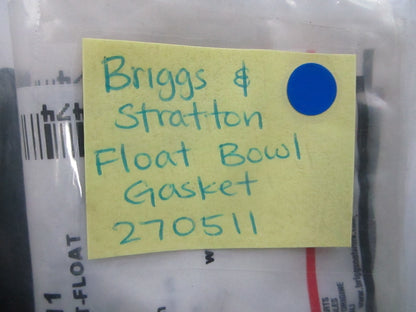 Briggs &
Stratton
Float Bowl
Gasket
270511
474
11
T-FLOAT